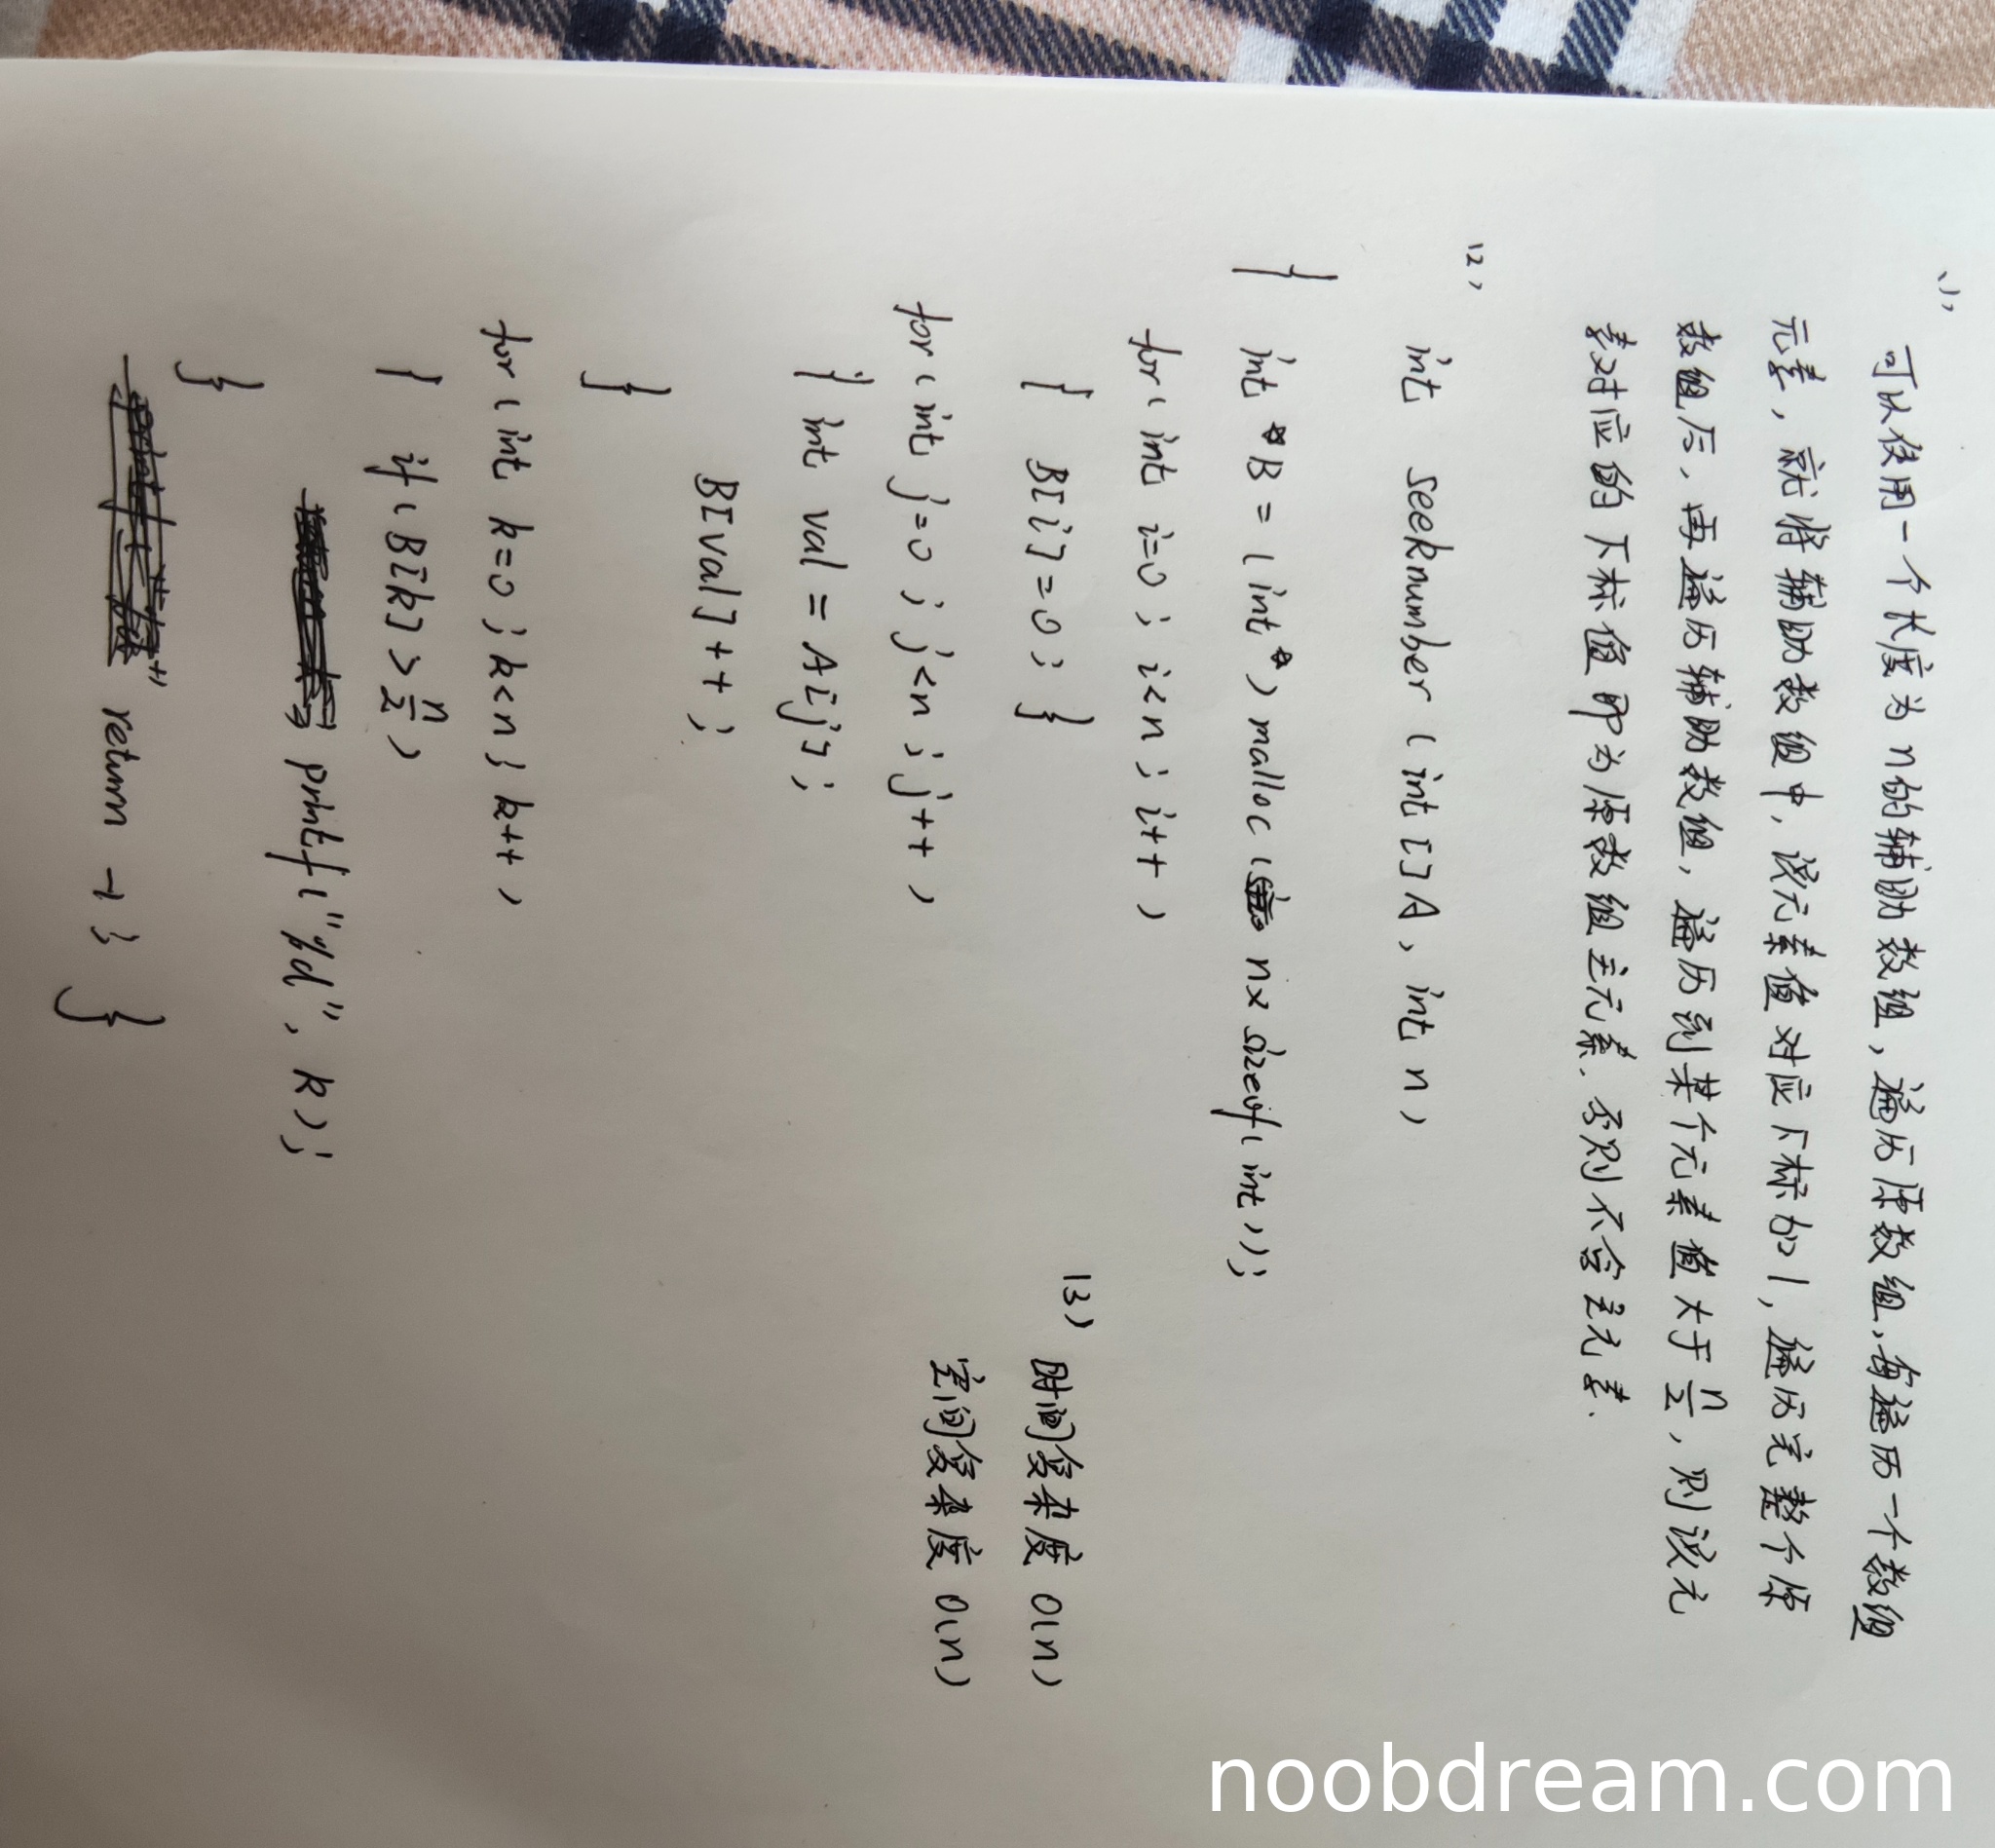 (1)
可以使用一个长度为n的辅助数组,遍历原数组,每遍历一个数组
元素,就将辅助数组中,该元素值对应下标加1,遍历完整个原
数组后,再遍历辅助数组,遍历到某个元素值大于n/2,则该元
素对应的下标值即为原数组主元素.否则不含主元素.
(2)
int seeknumber (int []A, int n)
{ int *B = (int*) malloc ( n× sizeof(int));
for (int i=0; i<n; i++)
{ B[i]=0; }
for (int j=0; j<n; j++)
{ int val = A[j];
B[val]++;
}
for (int k=0; k<n; k++)
{ if (B[k] > n/2)
printf("%d", k);
}
return -1; }
(3) 时间复杂度 O(n)
空间复杂度 O(n)
noobdream.com